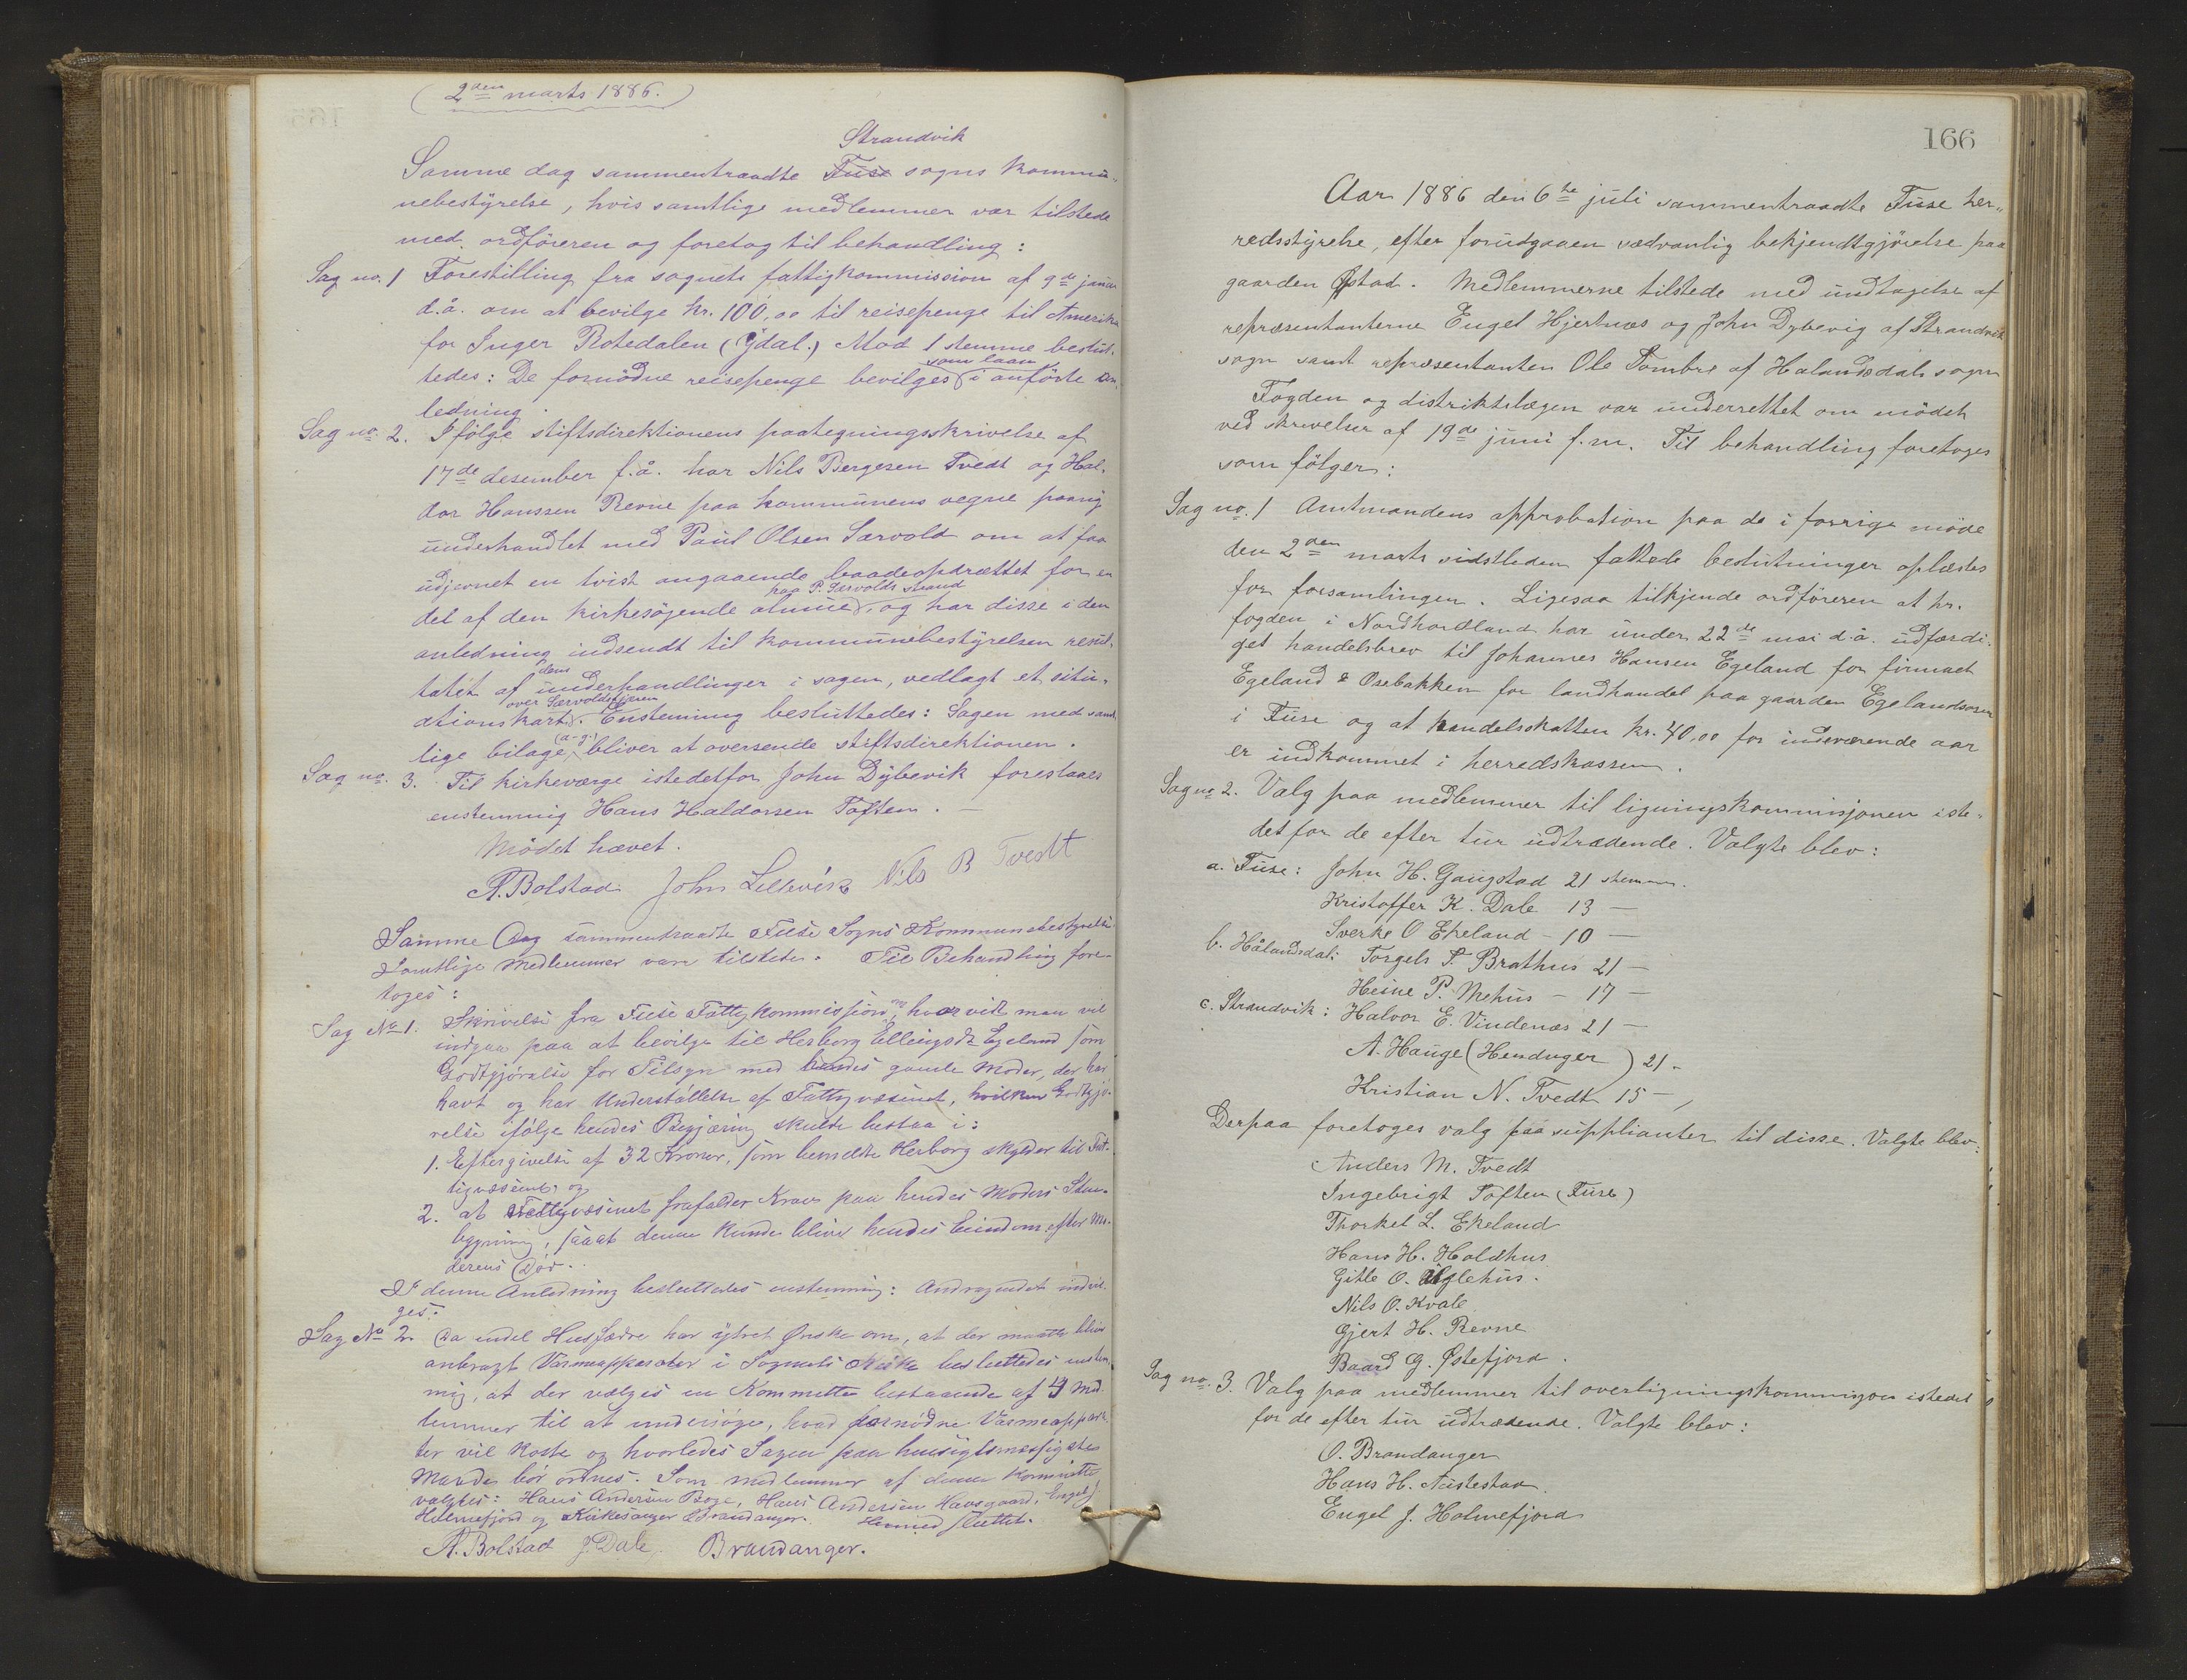 (2den marts 1886.)
Strandvik
Samme dag sammentraadte Fuse sogns kommu-
nebestyrelse, hvis samtlige medlemmer var tilstede
med ordføreren og foretog til behandling:
Sag no. 1 Forestilling fra sognets fattigkommission af 9de januar
d.å. om at bevilge kr. 100,00 til reisepenge til Amerika
for Inger Rotedalen (Ydal.) Mod 1 stemme beslut-
som laan
tedes: De fornødne reisepenge bevilges i anførte an-
ledning.
Sag no. 2. Ifølge stiftsdirektionens paategningsskrivelse af
17de desember f.å. har Nils Bergesen Tvedt og Hal-
dor Hanssen Revne paa kommunens vegne paany
underhandlet med Paul Olsen Særvold om at faa
udjevnet en tvist angaaende baadeopdrættet for en
paa P. Særvolds strand
del af den kirkesøgende almue, og har disse i den
anledning indsendt til kommunebestyrelsen resul-
dens
tatet af underhandlinger i sagen, vedlagt et situ-
over Særvoldstjøren
ationskart. Enstemmig besluttedes: Sagen med samt-
(a-g.)
lige bilage bliver at oversende stiftsdirektionen.
Sag no. 3. Til kirkeværge istedetfor John Dybevik foreslaaes
enstemmig Hans Haldorsen Tøften. —
Mødet hævet.
A. Bolstad John Lillevik Nils B Tvedt
Samme Dag sammentraadte Fuse Sogns Kommunebestyrelse
Samtlige Medlemmer vare tilstede. Til Behandling fore-
toges:
Sag No 1. Skrivelse fra Fuse Fattigkommission, hvorvidt man vil
indgaa paa at bevilge til Herborg Ellingsdtr Egeland som
Godtgjørelse for Tilsyn med hendes gamle Moder, der har
havt og har Understøttelse af Fattigvæsenet, hvilken Godtgjø-
relse ifølge hendes Begjæring skulde bestaa i:
1. Eftergivelse af 32 Kroner, som bemeldte Herborg skylder til Fat-
tigvæsenet, og
2. at Fattigvæsenet frafalder Krav paa hendes Moders Stue-
bygning, saaat denne kunde blive hendes Eiendom efter Mo-
derens Død.
I denne Anledning besluttedes enstemmig: Andragendet indvil-
ges.
Sag No 2. Da endel Husfædre har ytret Ønske om, at der maatte blive
anbragt Varmeapparater i Sognets Kirke besluttedes enstem-
mig, at der vælges en Kommitte bestaaende af 4 Med-
lemmer til at undersøge, hvad fornødne Varmeappara-
ter vil koste og hvorledes Sagen paa hensigtsmæssigste
Maade bør ordnes. Som Medlemmer af denne Kommitte
valgtes: Hans Andersen Boge, Hans Andersen Havsgaard, Engel J
Holmefjord og Kirkesanger Brandanger. Hermed sluttet.
A. Bolstad J Dale, Brandanger.
166
Aar 1886 den 6te juli sammentraadte Fuse her-
redsstyrelse, efter forudgaaen sædvanlig bekjendtgjørelse paa
gaarden Østad. Medlemmerne tilstede med undtagelse af
repræsentanterne Engel Hjertnæs og John Dybevig af Strandvik
sogn samt repræsentanten Ole Tombre af Halandsdals sogn
Fogden og distriktslægen var underrettet om mødet
ved skrivelser af 19de juni f.m. Til behandling foretoges
som følger:
Sag no. 1 Amtmandens approbation paa de i forrige møde
den 2den marts sidstleden fattede beslutninger oplæstes
for forsamlingen. Ligesaa tilkjende ordføreren at hr.
fogden i Nordhordland har under 22de mai d.å. udfærdi-
get handelsbrev til Johannes Hansen Egeland for firmaet
Egeland & Osebakken for landhandel paa gaarden Egelandsosen
i Fuse og at handelsskatten kr. 40,00 for indeværende aar
er indkommet i herredskassen.
Sag no 2. Valg paa medlemmer til ligningskommisjonen iste-
det for de efter tur udtrædende. Valgte blev:
a. Fuse: John H. Gaugstad 21 stemmer.
Kristoffer K. Dale 13 —
Sverke O Ekeland - 10 —
b. Hålandsdal: Torgels T. Brathus 21 —
Heine P. Mehus - 17 —
c. Strandvik: Halvor E. Vindenæs 21 —
A. Hauge (Henanger) 21 -
Kristian N. Tvedt 15 —
Derpaa foretoges valg paa supplianter til disse. Valgte blev:
Anders M. Tvedt
Ingebrigt Tøften (Fuse)
Thorkel L. Ekeland
Hans H. Holdhus
Gitle O. Uglehus.
Nils O. Kvale
Gjert H. Revne
Baard G. Østefjord.
Sag no. 3. Valg paa medlemmer til overligningskommisjon istedet
for de efter tur udtrædende. Valgte blev:
O. Brandanger
Hans H. Austestad.
Engel J. Holmefjord